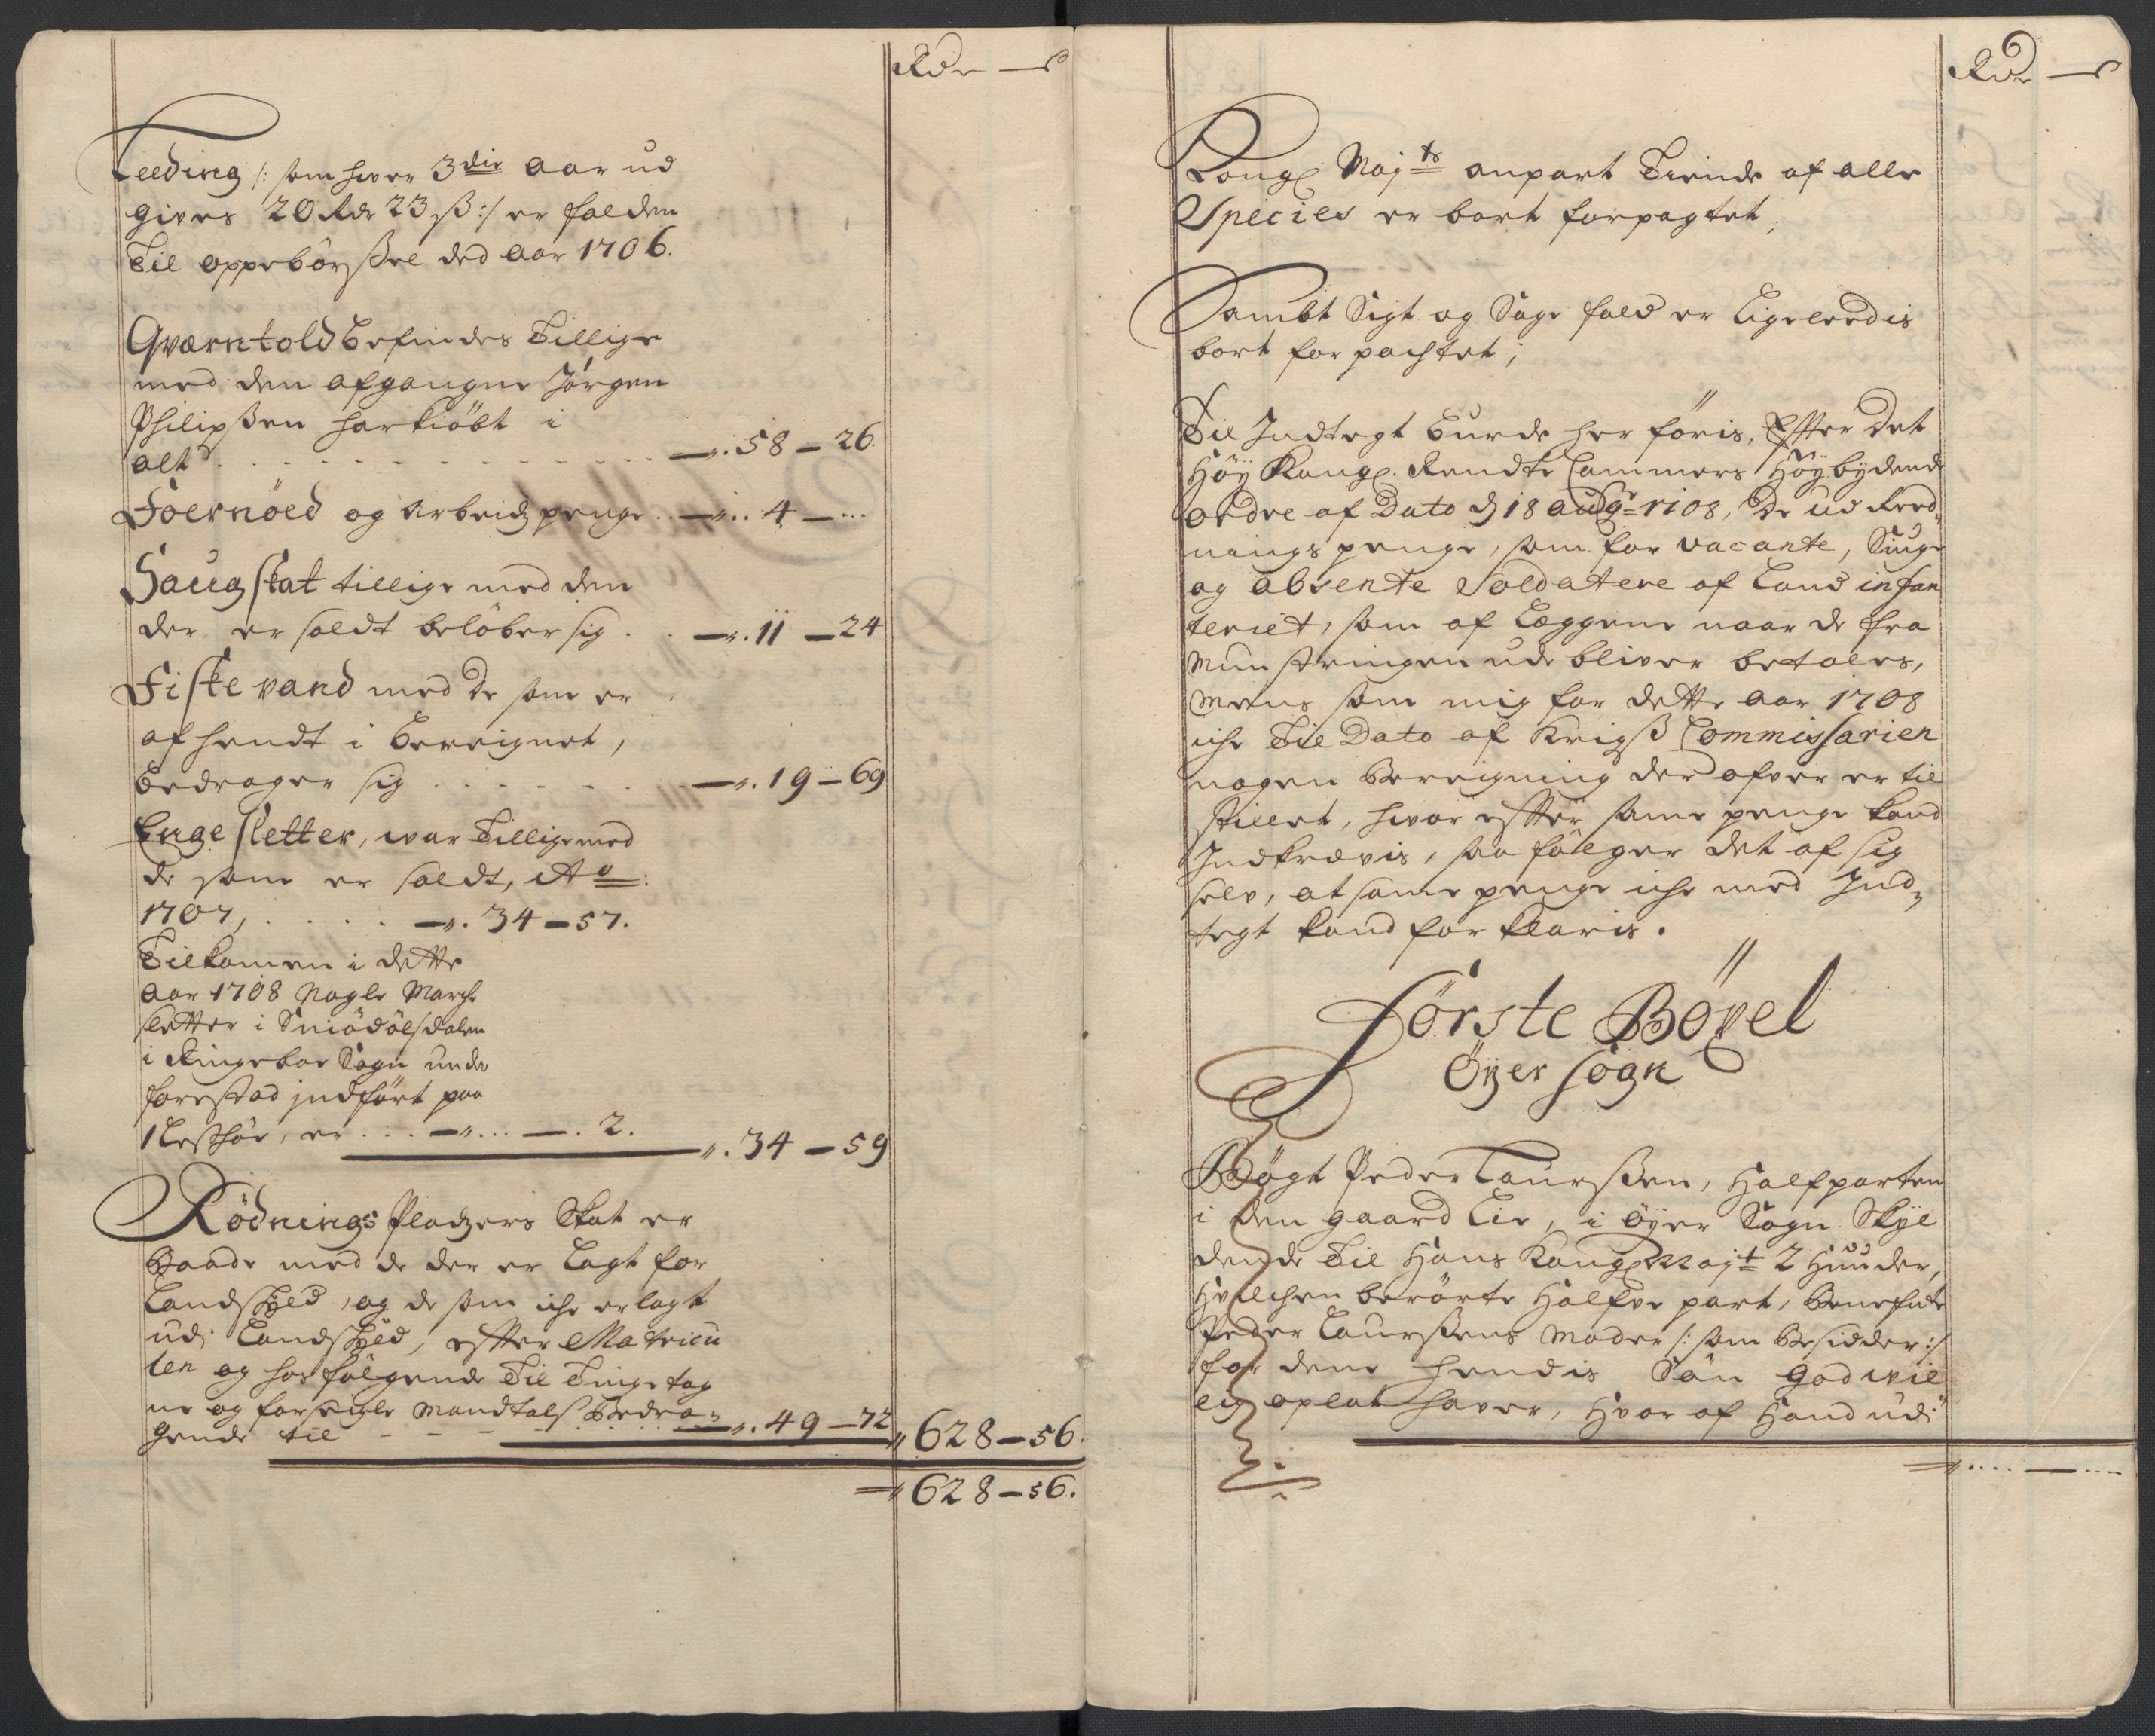 Rdr — s
Leeding /: som hver 3die aar ud
gives 20 Rdr 23 ß :/ er falden
Til oppebørßel ded aar 1706.
Qværntold befindes Tillige
med den afgangne Jørgen
Philipßen har kiöbt i
alt . . . . . —„. 58 — 26.
Foernöed og Arbeidspenge . . —„.. 4 — ...
Saugskat tillige med den
der er soldt beløber sig . . —„. 11 — 24
Fiskevand med de som er
afhendt i bereignet,
bedrager sig . . . . . —„. 19 — 69
Engesletter, war Tilligemed
de som er soldt, Ao:
1707, . . . . —„. 34 — 57.
Tilkomen i dette
aar 1708 Nogle March
sletter i Smiödölsdalen
i Ringeboe Sogn under
forestad indført paa
1 , er . . . —„... — . 2.
„. 34 — 59
Rödnings Pladzers Skat er
Baade med de der er lagt for
Landskyld, og de som iche er lagt
udi Landskyld, efter Matricu
len og hosfølgende Til Tinge tag
ne og forseigle Mandtals Bedra-
gende til - - - - —„. 49 — 72 „ 628 — 56.
„ 628 — 56.
Rdr — s
Kongl Majts anpart Tiende af alle
Species er bort forpagtet;
Sambt Sigt og Sagefald er ligeleedis
bort forpachtet;
Til Indtegt burde her føris, Efter Det
Höy Kongl. Rendte Cammers Höybydende
ordre af Dato d 18 Augs 1708, De udReed-
nings penge, som for vacante, Siuge
og absente Soldatere af Land infan
teriet, som af Læggene naar de fra
Munstringen ude bliver betales,
Mens som mig for dette aar 1708
iche Til Dato af Krigs Commissarien
nogen Bereigning der ofver er til
stillet, hvor efter same penge kand
Indkrævis, saa følger det af sig
selv, at same penge iche med Ind-
tegt kand forklaris.
Förste Böxel
Öyer Sogn
Bögt Peder Laursßen, Halfparten
i den gaard Lie, i øyer Sogn Skyl
dende Til Hans Kongl Mayt 2 Huuder,
Hvilchen berørte Halfve part, benefnte
Peder Laursßens Moder /: som besidder :/
for dene hendis Sön godwil
lig opladt haver, Hvor af Hand udi
„ .... — ...